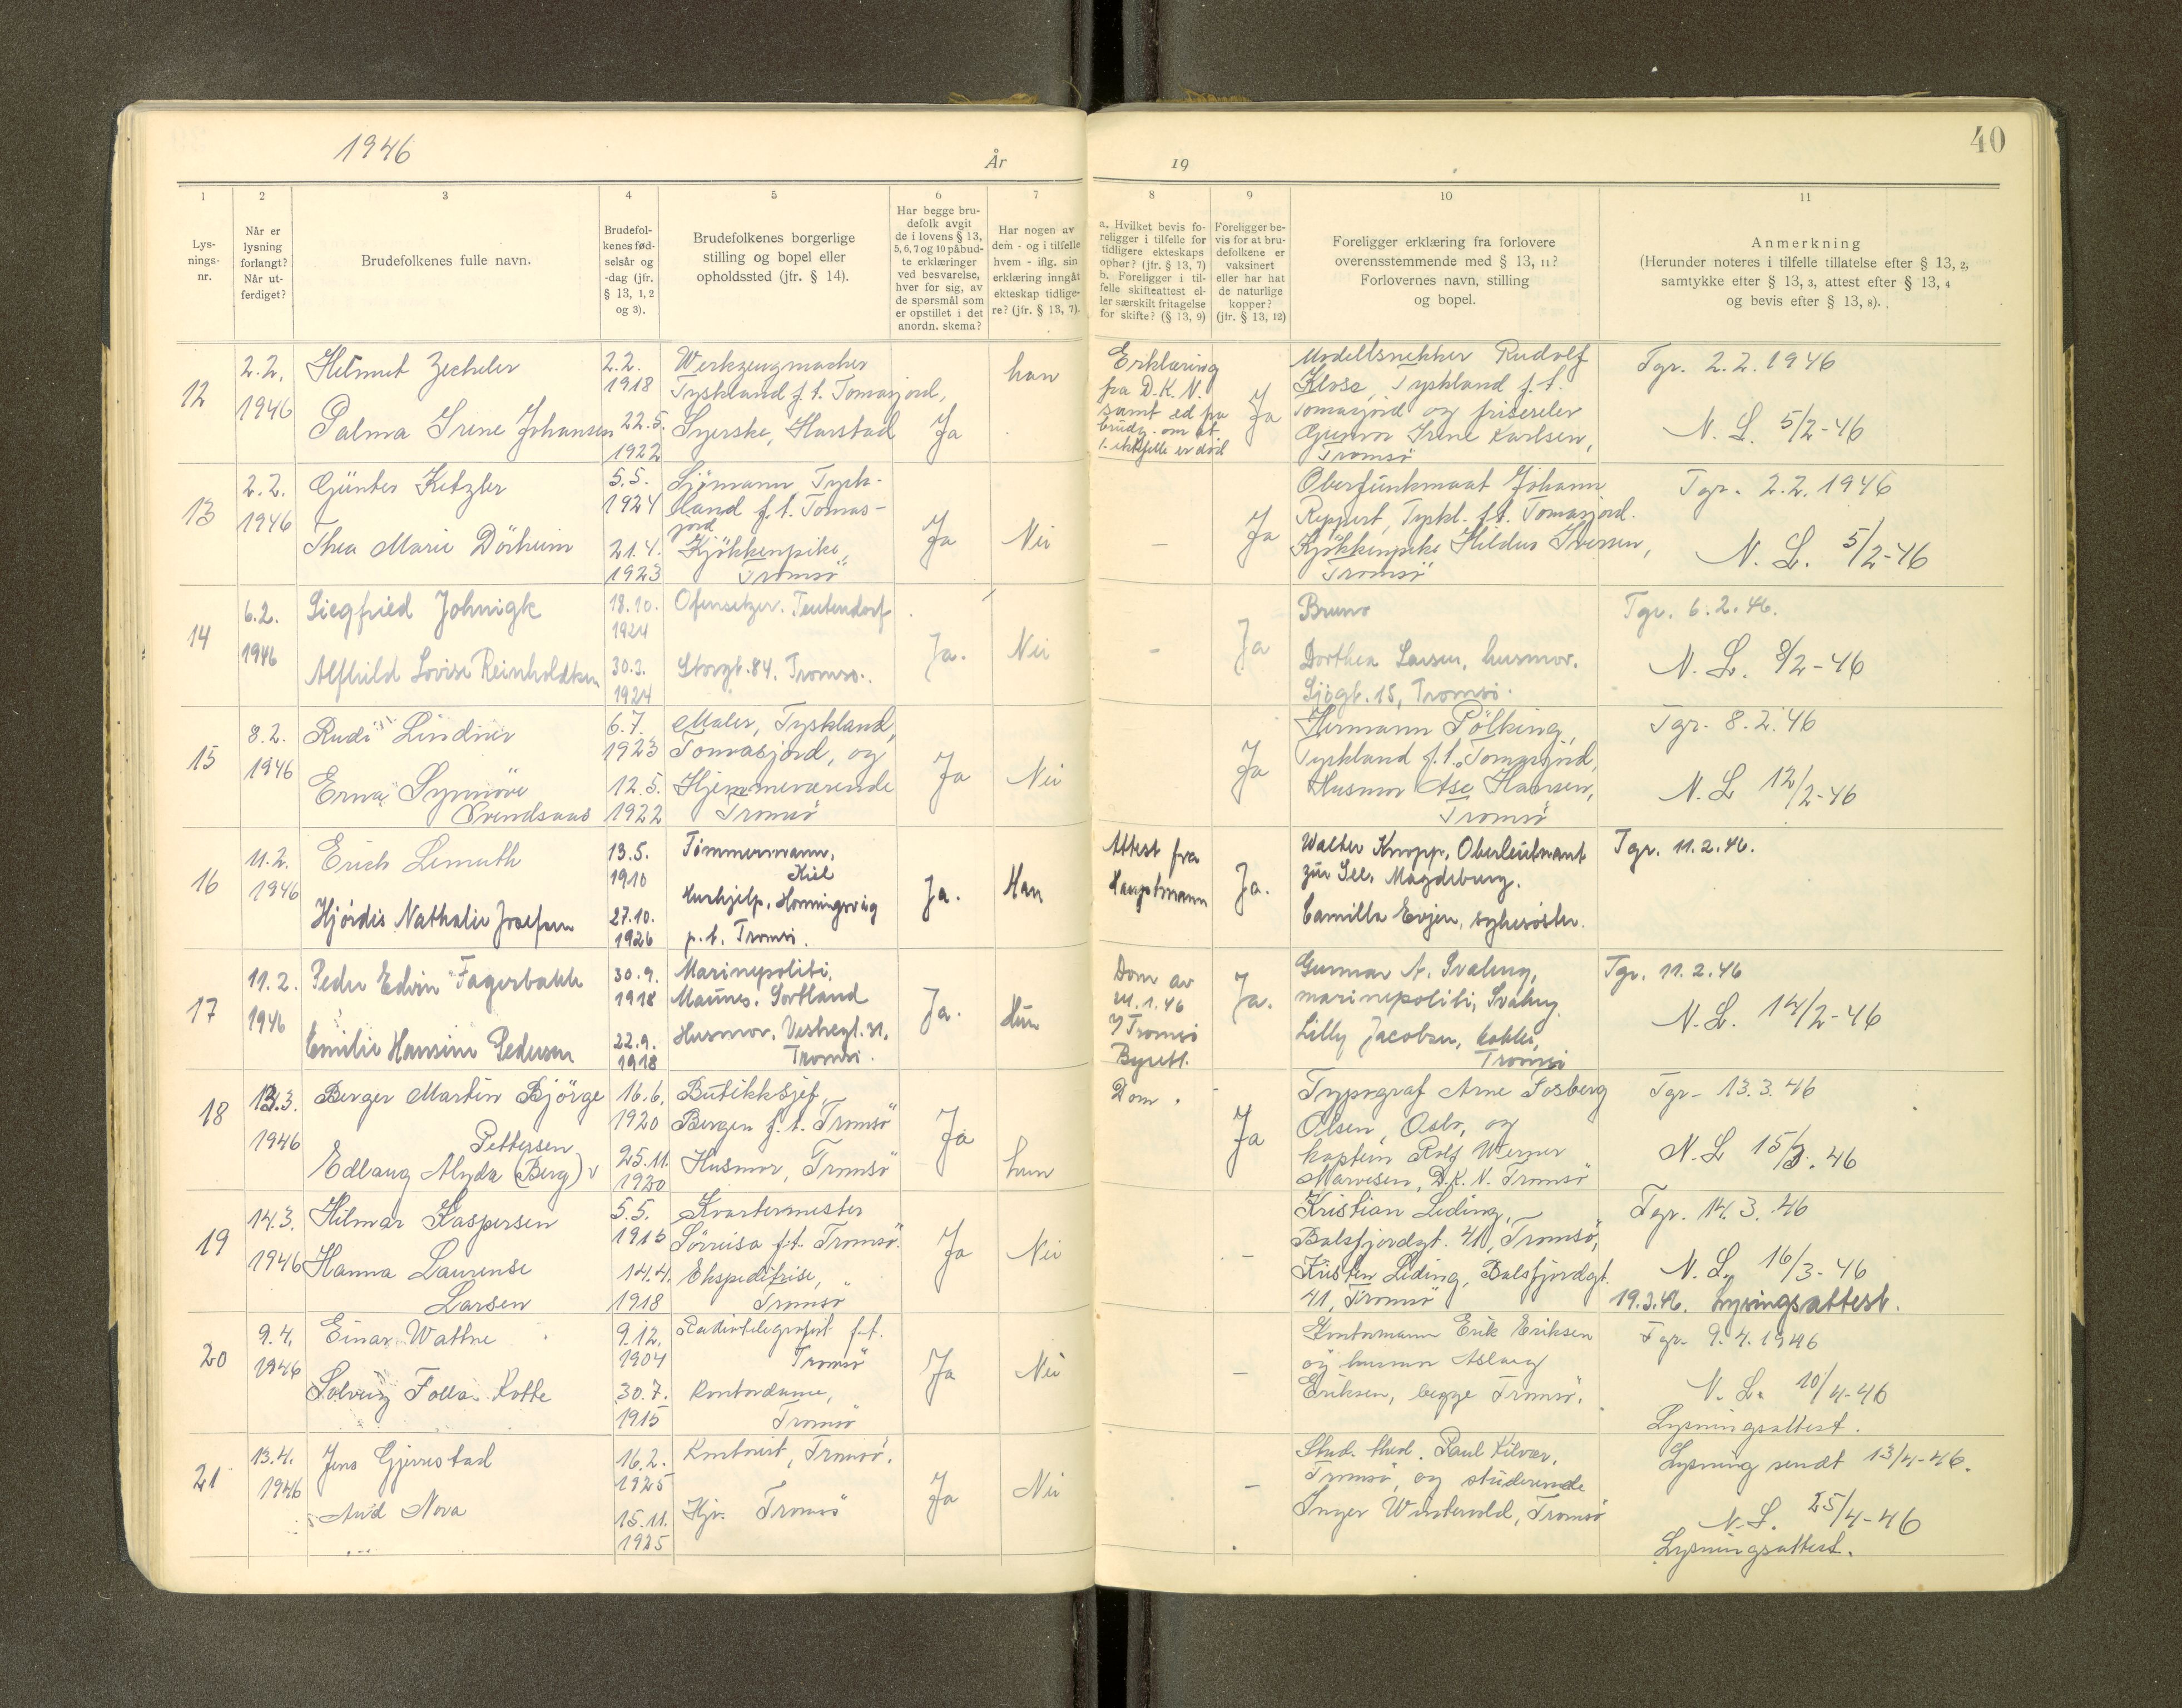 1946
År
19
40
1
2
3
4
5
6
7
8
9
10
11
Lys-
nings-
nr.
Når er
lysning
forlangt?
Når ut-
ferdiget?
Brudefolkenes fulle navn.
Brudefol-
kenes fød-
selsår og
-dag (jfr.
§ 13, 1, 2
og 3).
Brudefolkenes borgerlige
stilling og bopel eller
opholdssted (jfr. § 14).
Har begge bru-
defolk avgit
de i lovens § 13,
5, 6, 7 og 10 påbud-
te erklæringer
ved besvarelse,
hver for sig, av
de spørsmål som
er opstillet i det
anordn. skema?
Har nogen av
dem - og i tilfelle
hvem - iflg. sin
erklæring inngåt
ekteskap tidlige-
re? (jfr. § 13, 7).
a. Hvilket bevis fo-
religger i tilfelle for
tidligere ekteskaps
ophør? (jfr. § 13, 7)
b. Foreligger i til-
felle skifteattest el-
ler særskilt fritagelse
for skifte? (§ 13, 9)
Foreligger be-
vis for at bru-
defolkene er
vaksinert
eller har hat
de naturlige
kopper?
(jfr. § 13, 12)
Foreligger erklæring fra forlovere
overensstemmende med § 13, 11?
Forlovernes navn, stilling
og bopel.
Anmerkning
(Herunder noteres i tilfelle tillatelse efter § 13, 2,
samtykke etter § 13, 3, attest efter § 13, 4
og bevis efter § 13, 8).
12
2.2.
1946
Helmut Zecheler
Palma Irene Johansen
2.2.
1918
22.5.
1922
Werkzeugmacher
Tyskland f.t. Tomasjord,
Syerske, Harstad
Ja
han
Erklæring
fra D.K.N.
samt ed fra
brudg. om at
1. ektefelle er död
Ja
Modellsnekker Rudolf
Klose, Tyskland f.t.
Tomasjord og friserelev
Gunvor Irene Karlsen,
Tromsö
Tgr. 2.2.1946
N. L. 5/2-46
13
2.2.
1946
Günter Ketzler
Thea Marie Dörheim
5.5.
1924
21.4.
1923
Sjömann Tysk-
land f.t. Tomas-
jord
Kjökkenpike,
Tromsö
Ja
Nei
-
Ja
Oberfunkmaat Johann
Reppert, Tyskl. f.t. Tomasjord.
Kjökkenpike Hildur Iversen,
Tromsö
Tgr. 2.2.1946
N. L. 5/2-46
14
6.2.
1946
Siegfried Johnigk
Alfhild Lovise Reinholdtsen
18.10.
1924
30.3.
1924
Ofensetzer. Teutendorf
Storgt. 84. Tromsö.
Ja.
Nei
-
Ja
Bruno
Dorthea Larsen, husmor.
Sjögt. 15, Tromsö.
Tgr. 6.2.46.
N. L. 8/2-46
15
8.2.
1946
Rudi Lindner
Erna Synnöve
Svendsaas
6.7.
1923
12.5.
1922
Maler, Tyskland,
Tomasjord, og
Hjemmeværende
Tromsö
Ja
Nei
Ja
Hermann Pölking,
Tyskland f.t. Tomasjord,
Husmor Åse Hansen,
Tromsö
Tgr. 8.2.46
N. L 12/2-46
16
11.2.
1946
Erich Lemuth
Hjördis Nathalie Josefsen
13.5.
1910
27.10.
1926
Tömmermann,
Kiel
Hushjelp, Honningsvåg
p.t. Tromsö.
Ja.
Han
Attest fra
Hauptmann
Ja.
Walter Knopp, Oberleutnant
zur See, Magdeburg.
Camilla Evjen, sykesöster.
Tgr. 11.2.46.
17
11.2.
1946
Peder Edvin Fagerbakk
Emilie Hansine Pedersen
30.9.
1918
22.9.
1918
Marinepoliti,
Maunes. Sortland
Husmor. Vestregt. 31,
Tromsö.
Ja.
Hun
Dom av
1.46
Tromsö
Byrett.
Ja.
Gunnar A. Svaling,
marinepoliti, Svaling.
Lilly Jacobsen, kokke,
Tromsö
Tgr. 11.2.46
N. L. 14/2-46
18
13.3.
1946
Berger Martin Björge
Pettersen
Edlaug Alyda (Berg)
16.6.
1920
25.11.
1920
Butikksjef,
Bergen f.t. Tromsö
Husmor, Tromsö
Ja
hun
Dom.
Ja
Typograf Arne Fosberg
Olsen, Oslo, og
kaptein Rolf Werner
Marvesen, D.K.N. Tromsö
Tgr- 13.3.46
N. L 15/3.46
19
14.3.
1946
Hilmar Kaspersen
Hanna Laurense
Larsen
5.5.
1915
14.4.
1918
Kvartermester
Sörreisa f.t. Tromsö.
Ekspeditrise,
Tromsö
Ja
Nei
-
Kristian Liding,
Balsfjordgt. 41, Tromsö,
Kirsten Liding, Balsfjordgt.
41, Tromsö
Tgr. 14.3.46
N. L. 16/3-46
19.3.46. Lysingsattest.
20
9.4.
1946
Einar Wattne
Solveig Folla Kotte
9.12.
1904
30.7.
1915
Radiotelegrafist f.t.
Tromsö
Kontordame,
Tromsö
Ja
Nei
-
Kontormann Erik Eriksen
og husmor Aslaug
Eriksen, begge Tromsö.
Tgr- 9.4.1946
N. L. 10/4-46
Lysningsattest.
21
13.4.
1946
Jens Gjerrestad
Aud Nova
16.2.
1925
15.11.
1925
Kontorist, Tromsö.
Hjv. Tromsö
Ja
Nei
-
Stud. theol. Paul Kilvær,
Tromsö, og studerende
Inger Wintervold, Tromsö
Lysning sendt 13/4-46.
N. L. 25/4-46
Lysningsattest.